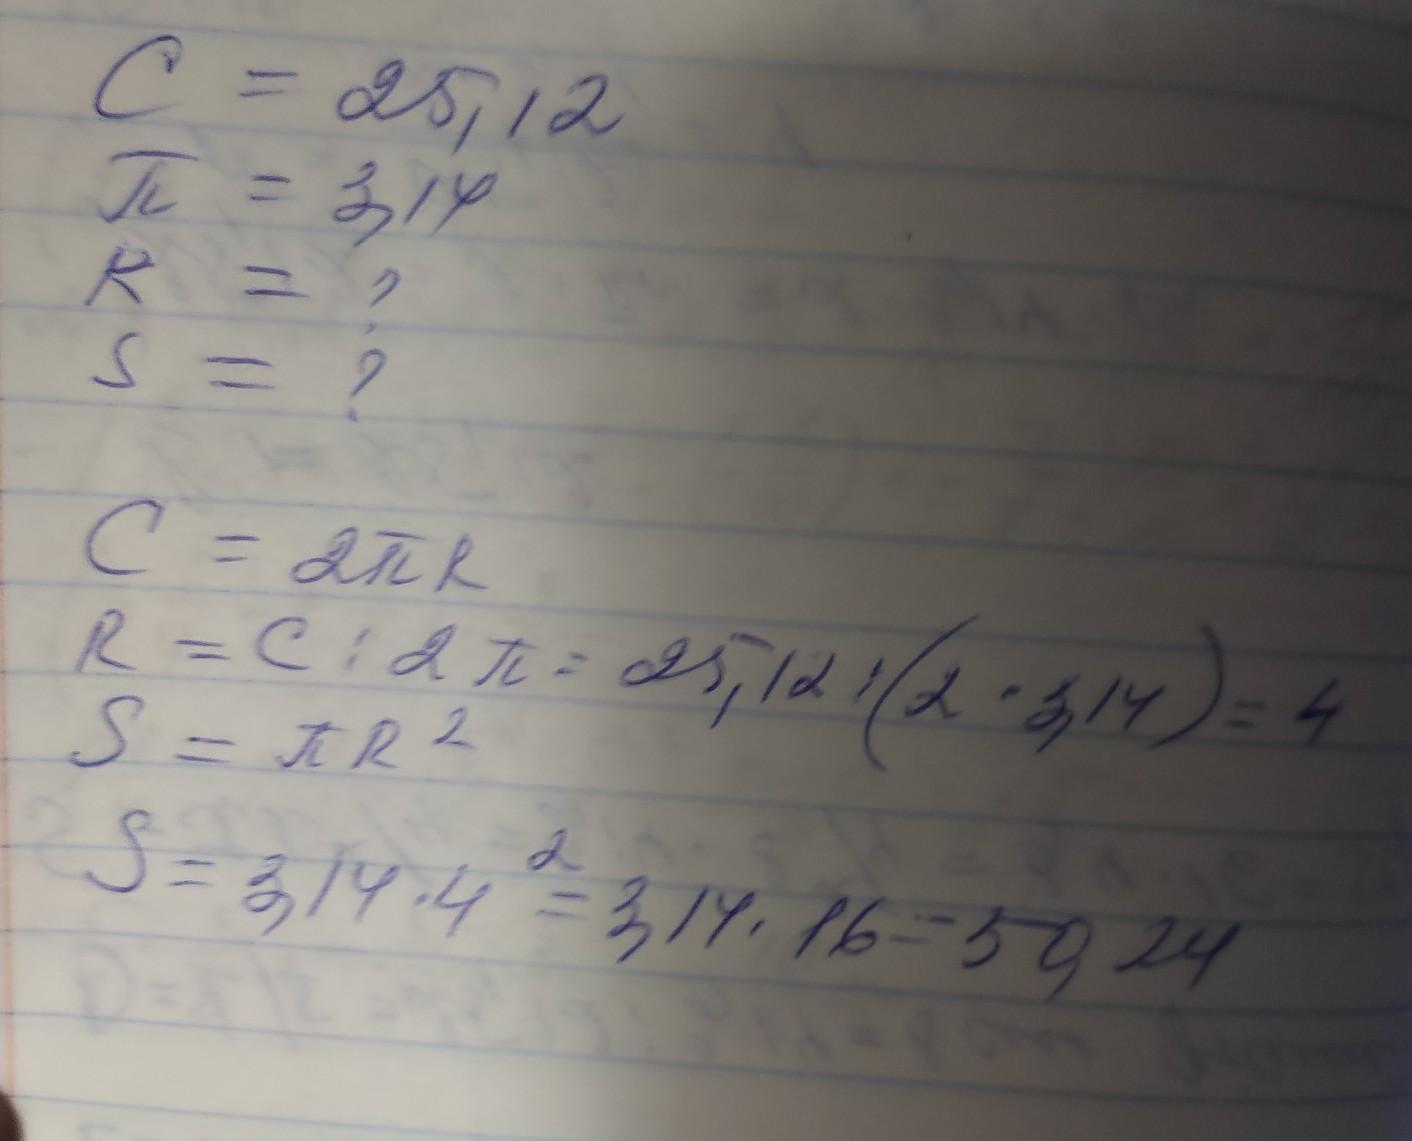 C = 25,12
π = 3,14
R = ?
S = ?
C = 2πR
R = C : 2π = 25,12 : (2 · 3,14) = 4
S = πR²
S = 3,14 · 4² = 3,14 · 16 = 50,24